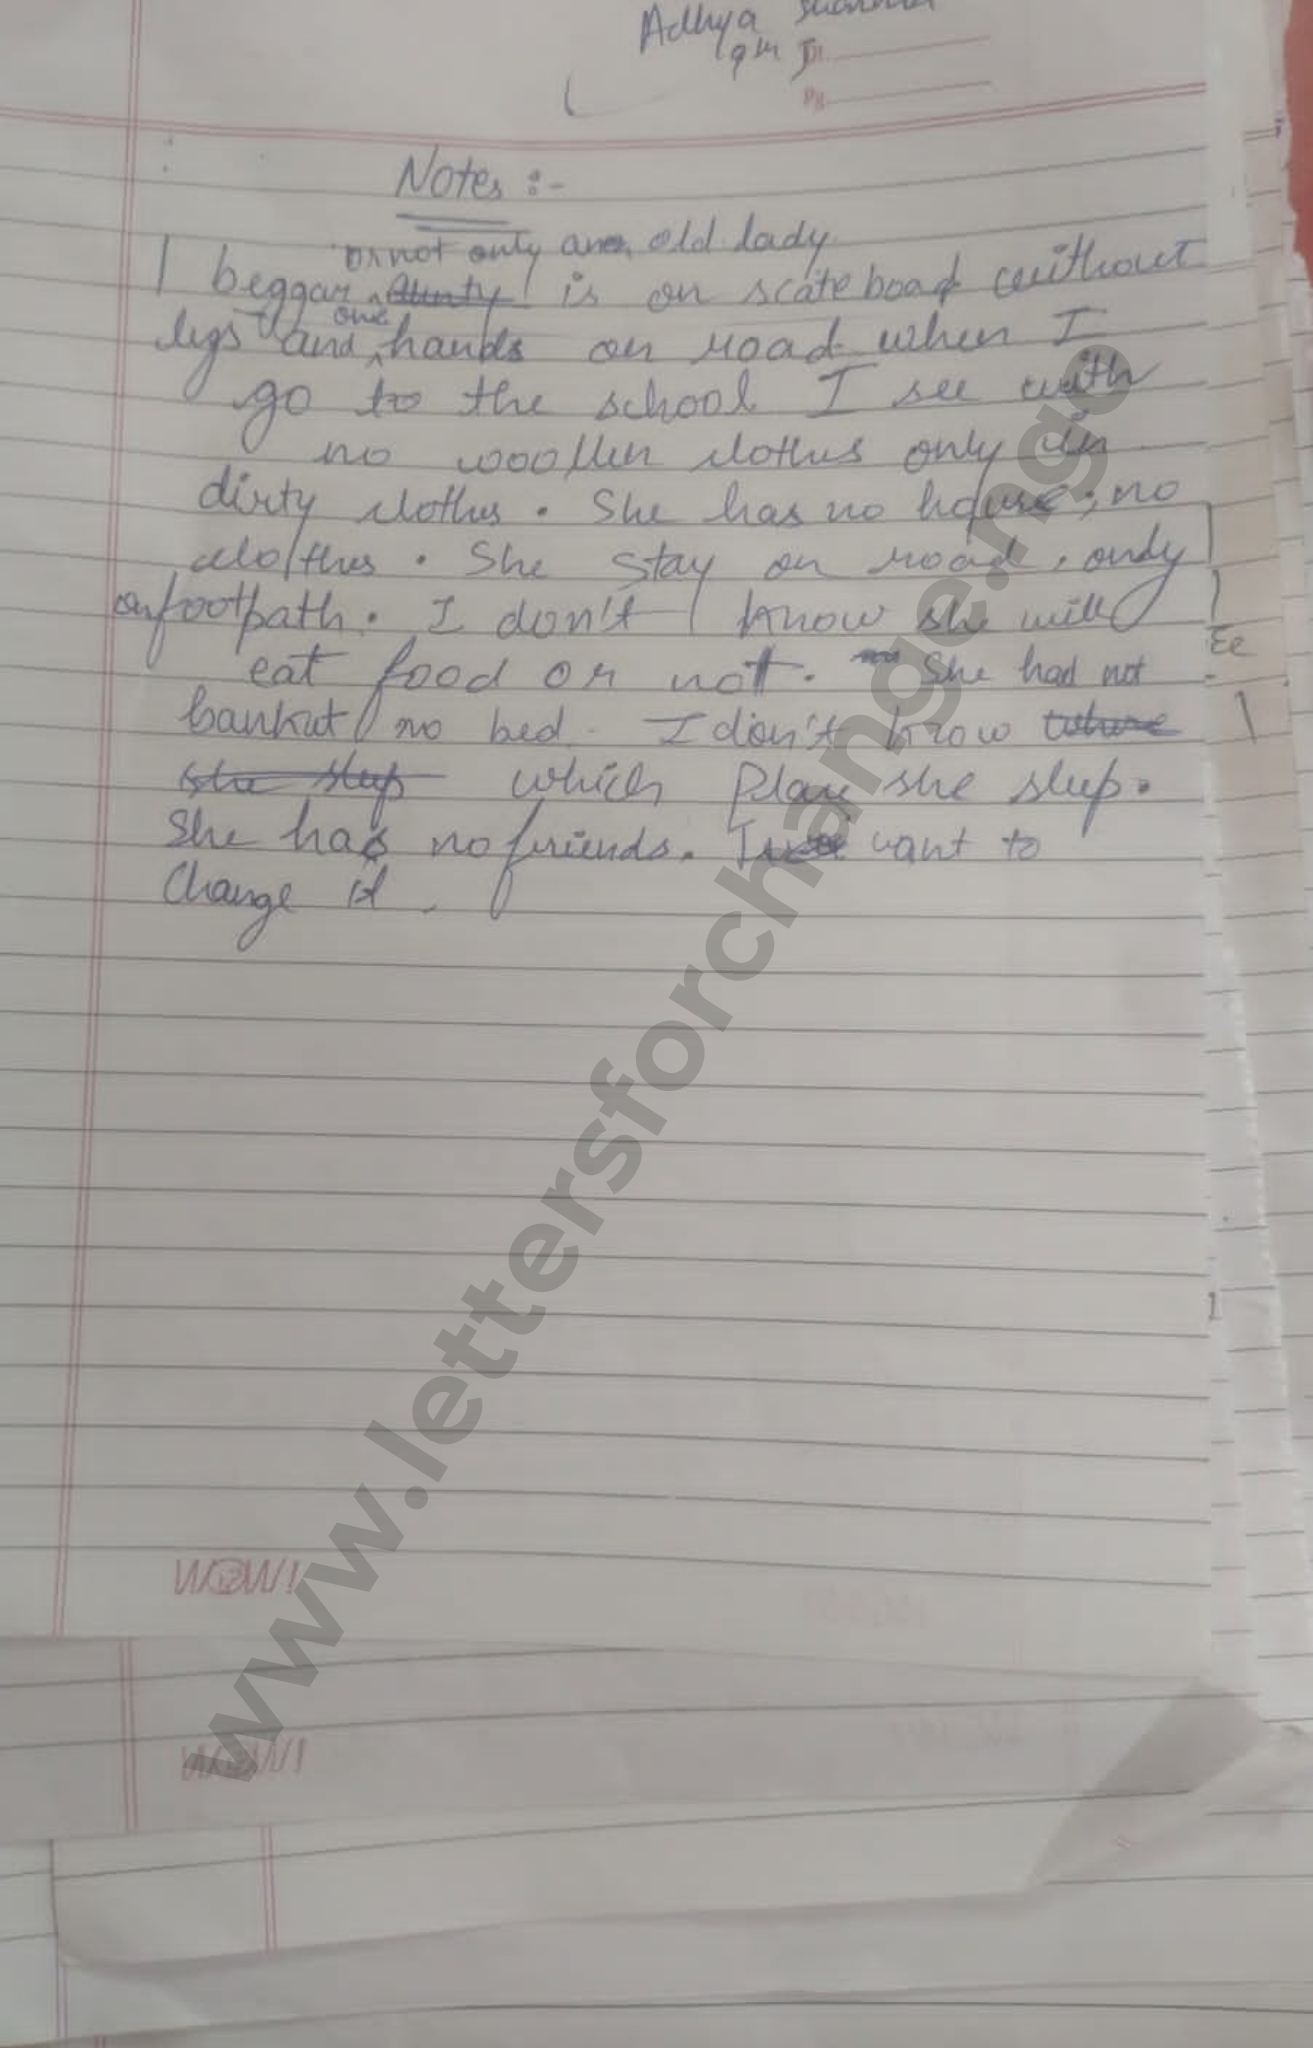 Adhya
9th J
Pg.
Notes :-
or not only an old lady
1 beggar aunty is on scateboad without
legs and one hands on road when I
go to the school I see with
no woollen clothes only in
dirty clothes. She has no house, no
clothes. She stay on road, only
on footpath. I don't know she will
eat food or not. She had not
bankut no bed. I don't know where
she sleep which place she sleep.
She has no friends. I want to
Change it.
Ee
1
WOW!
WOW!
www.lettersforchange.ngo